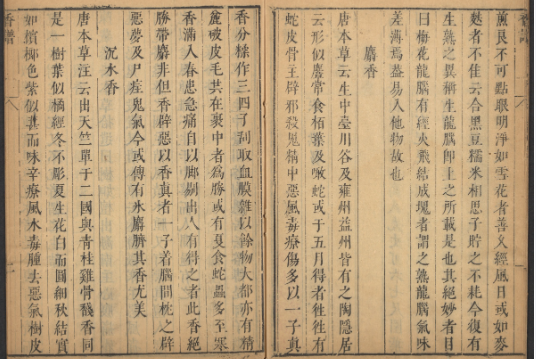 煎良不可點眼明淨如雪花者善久經風日或如麥
麩者不佳云合黑豆糯米相思子貯之不耗今復有
生熟之異稱生龍腦即上之所載是也其絕妙者目
曰梅花龍腦有經火飛結成塊者謂之熟龍腦氣味
差薄焉蓋易入他物故也
麝香
唐本草云生中臺川谷及雍州益州皆有之陶隱居
云形似麞常食栢葉及噉蛇或于五月得者往往有
蛇皮骨主辟邪殺鬼精中惡風毒療傷多以一子真
香分糅作三四子刮取血膜雜以餘物大都亦有精
麄破皮毛共在裹中者為勝或有夏食蛇蟲多至寒
香滿入春患急痛自以脚剔出人有得之者此香絕
勝帶麝非但香辟惡以香真者一子著腦間枕之辟
惡夢及尸疰鬼氣今或傳有水麝臍其香尤美
沉水香
唐本草注云出天竺單于二國與青桂雞骨䭱香同
是一樹葉似橘經冬不彫夏生花白而圓細秋結實
如檳榔色紫似葚而味辛療風水毒腫去惡氣樹皮
香譜